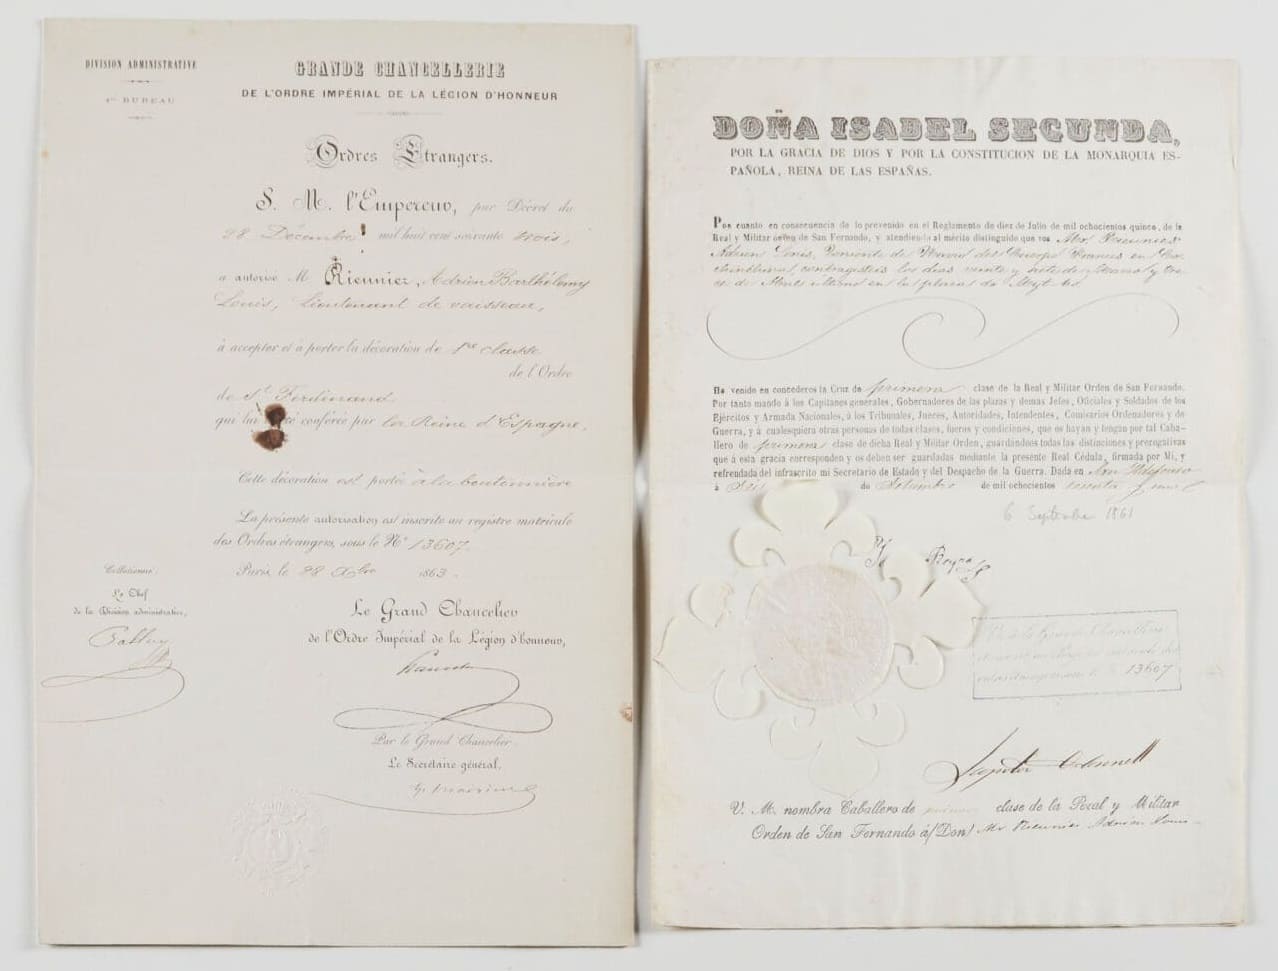 DIVISION ADMINISTRATIVE
1er BUREAU
GRANDE CHANCELLERIE
DE L'ORDRE IMPÉRIAL DE LA LÉGION D'HONNEUR
Ordres Étrangers.
S. M. l'Empereur, par Décret du
28 Décembre mil huit cent soixante trois,
a autorisé M Rieunier, Adrien Barthélemy
Louis, Lieutenant de vaisseau,
à accepter et à porter la décoration de 1re classe
de l'Ordre
de St Ferdinand
qui lui a été conférée par la Reine d'Espagne.
Cette décoration est portée à la boutonnière
La présente autorisation est inscrite au registre matricule
des Ordres étrangers, sous le No 13607.
Paris, le 28 Xbre 1863.
Collationné
Le Chef
de la Division administrative,
Le Grand Chancelier
de l'Ordre Impérial de la Légion d'honneur,
Par le Grand Chancelier
Le Secrétaire général,
DOÑA ISABEL SEGUNDA,
POR LA GRACIA DE DIOS Y POR LA CONSTITUCION DE LA MONARQUIA ES-
PAÑOLA, REINA DE LAS ESPAÑAS.
Por cuanto en consecuencia de lo prevenido en el Reglamento de diez de Julio de mil ochocientos quince, de la
Real y Militar órden de San Fernando, y atendiendo al mérito distinguido que vos Mr. Rieunier
Adrien Louis, Teniente de Navio del Cuerpo Frances en Co-
chinchina, contragisteis los dias veinte y siete de Marzo y tre-
ce de Abril último en la plaza de
He venido en concederos la Cruz de primera clase de la Real y Militar Orden de San Fernando.
Por tanto mando á los Capitanes generales, Gobernadores de las plazas y demas Jefes, Oficiales y Soldados de los
Ejércitos y Armada Nacionales, á los Tribunales, Jueces, Autoridades, Intendentes, Comisarios Ordenadores y de
Guerra, y á cualesquiera otras personas de todas clases, fueros y condiciones, que os hayan y tengan por tal Caba-
llero de primera clase de dicha Real y Militar Orden, guardándoos todas las distinciones y prerogativas
que á esta gracia corresponden y os deben ser guardadas mediante la presente Real Cédula, firmada por Mi, y
refrendada del infrascrito mi Secretario de Estado y del Despacho de la Guerra. Dada en San Ildefonso
á Seis de Setiembre de mil ochocientos sesenta y uno
6 Septembre 1861
Yo la Reyna
Vu à la Grande Chancellerie
13607
Leopoldo O'Donnell
V. M. nombra Caballero de primera clase de la Real y Militar
Orden de San Fernando á (Don) Mr Rieunier Adrien Louis